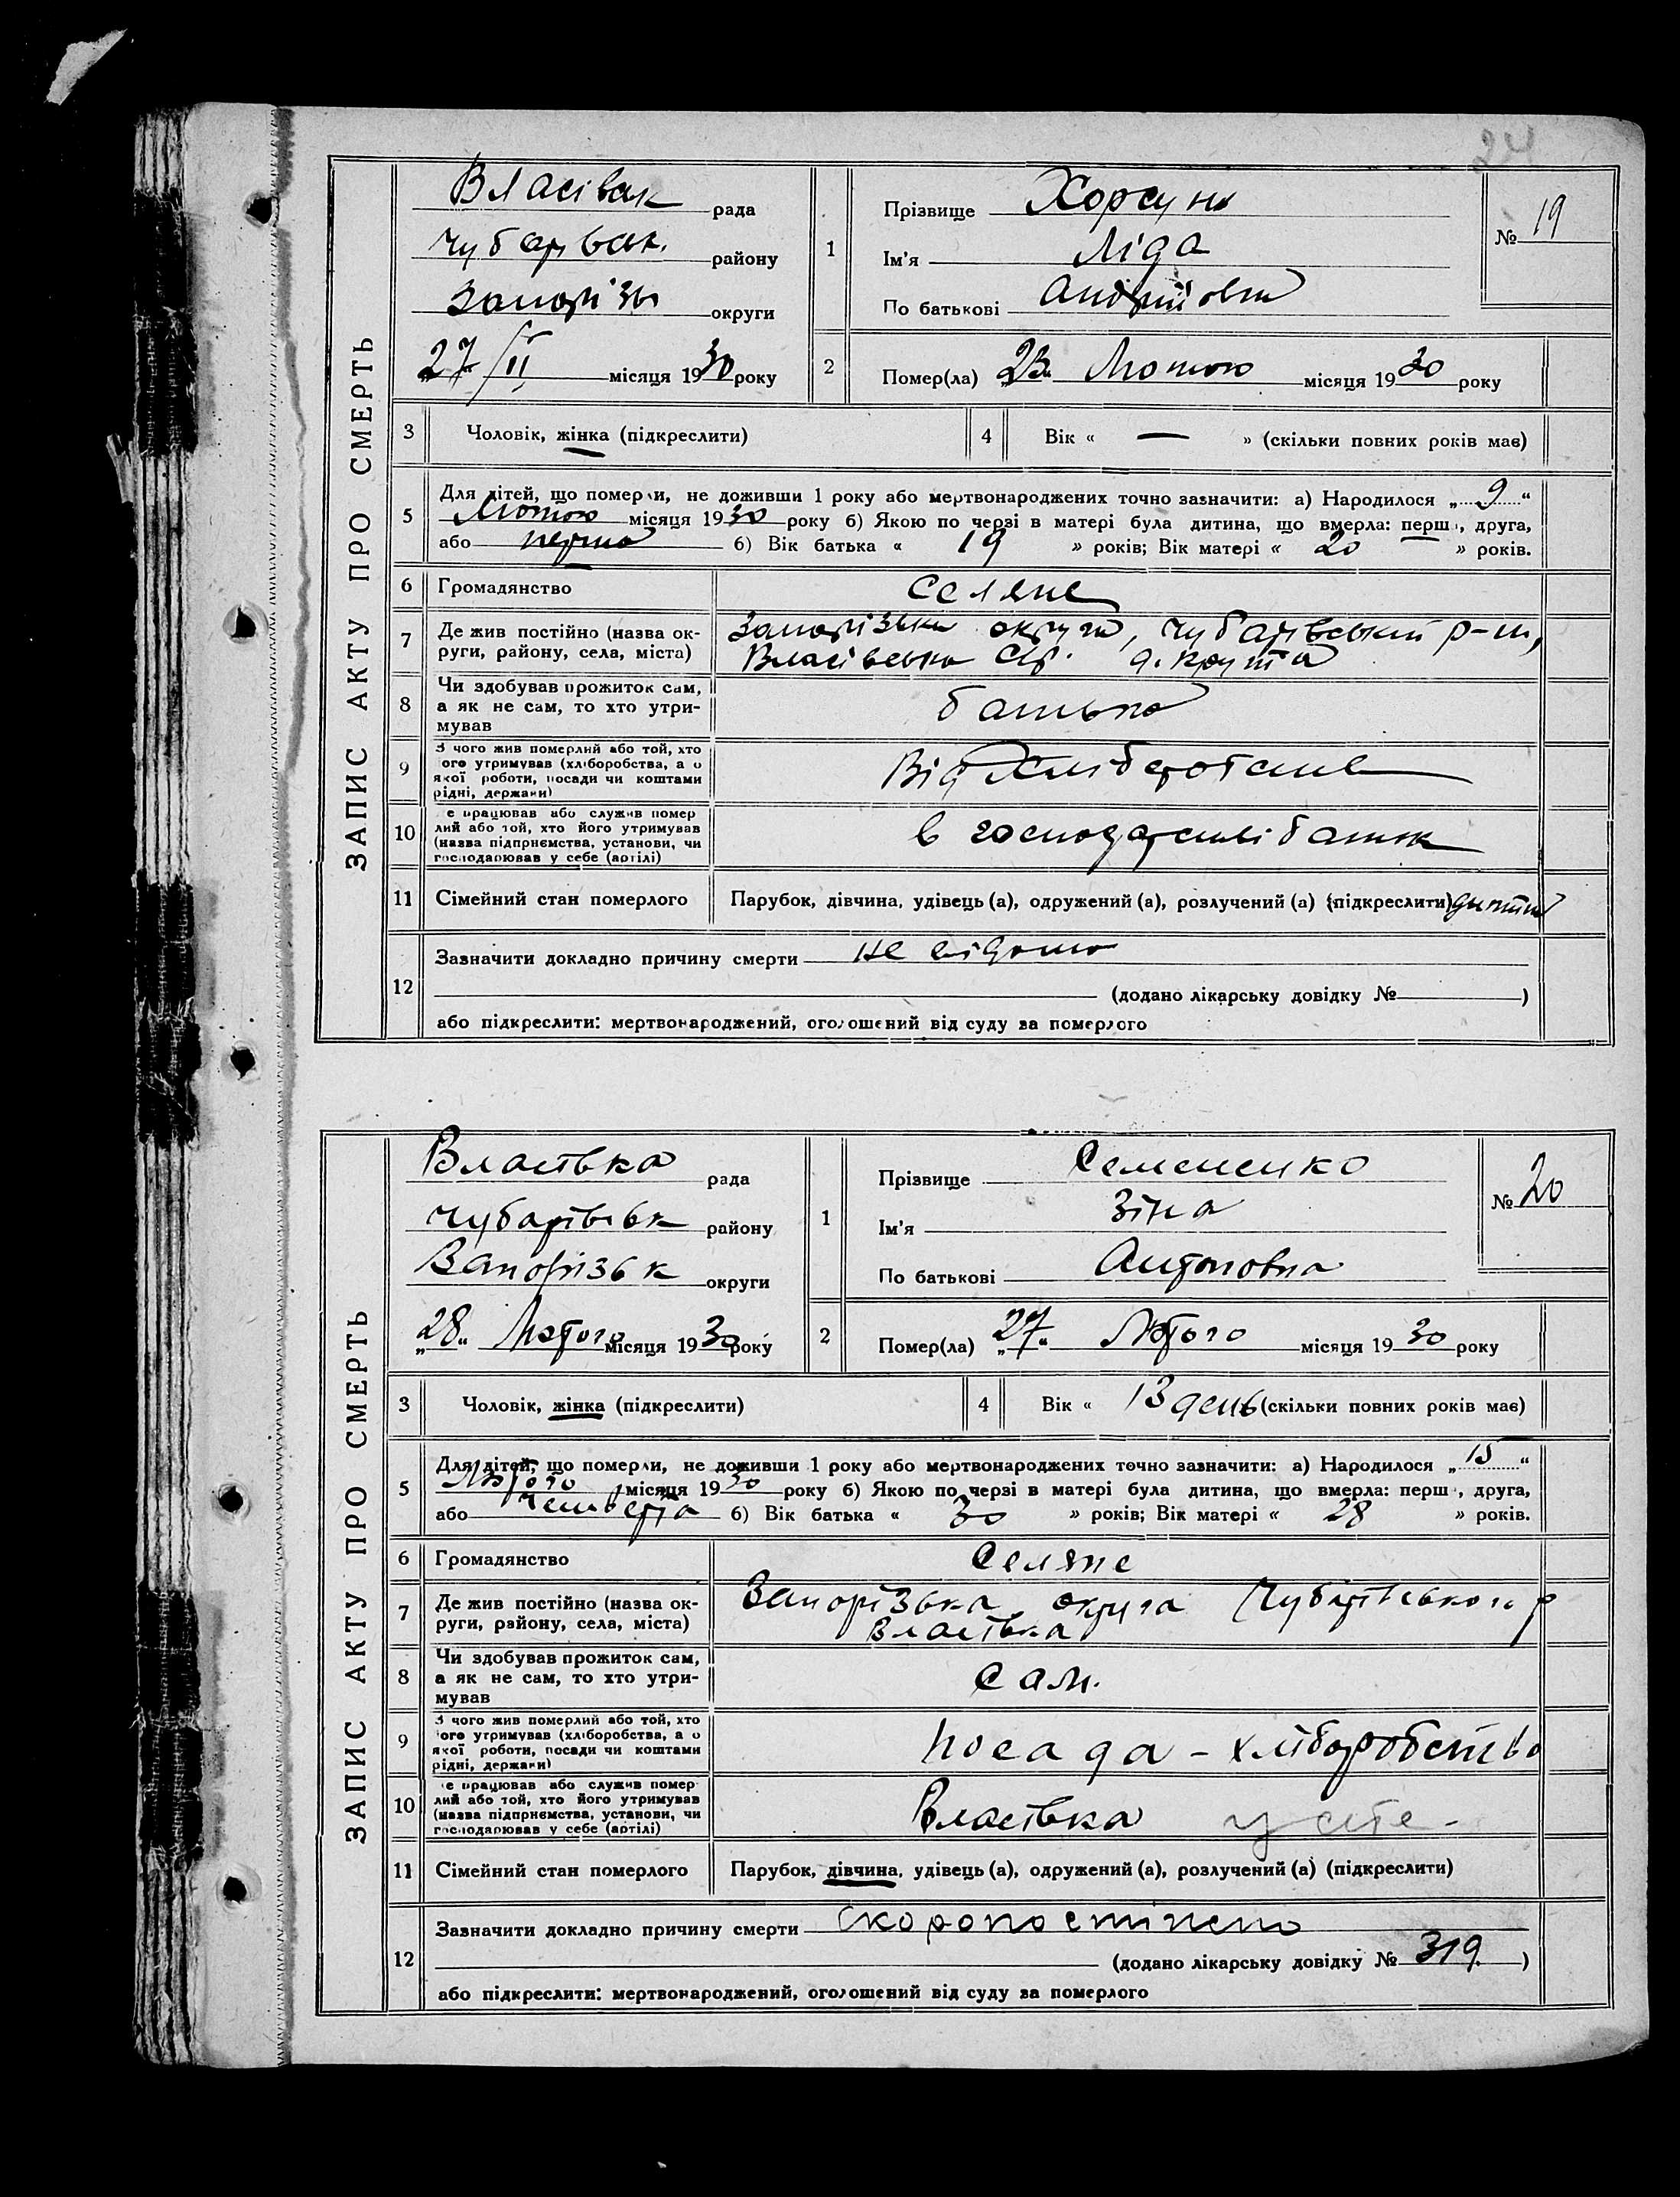 24
ЗАПИС АКТУ ПРО СМЕРТЬ
Власівськ рада
Чубарівськ. району
Запорізьк округи
27/II місяця 1930 року
1
Прізвище Хорсун
Ім'я Ліда
По батькові Андріївна
№ 19
2
Помер(ла) „23“ Лютого місяця 1930 року
3 Чоловік, жінка (підкреслити)
4 Вік « — » (скільки повних років має)
5 Для дітей, що померли, не доживши 1 року або мертвонароджених точно зазначити: а) Народилося „9“
Лютого місяця 1930 року б) Якою по черзі в матері була дитина, що вмерла: перша, друга,
або перша б) Вік батька « 19 » років; Вік матері « 20 » років.
6 Громадянство Селяне
7 Де жив постійно (назва ок-
руги, району, села, міста)
Запорізька округа, Чубарівський р-н,
Власівська с/р.
8 Чи здобував прожиток сам,
а як не сам, то хто утри-
мував
батько
9 З чого жив померлий або той, хто
його утримував (хліборобства, а о
якої роботи, посади чи коштами
рідні, держави)
Від Хліборобства
10 е працював або служив помер
лий або той, хто його утримував
(назва підприємства, установи, чи
господарював у себе (артілі)
в господарстві батьк
11 Сімейний стан померлого Парубок, дівчина, удівець (а), одружений (а), розлучений (а) (підкреслити) дитина
12 Зазначити докладно причину смерти не відомо
(додано лікарську довідку № )
або підкреслити: мертвонароджений, оголошений від суду за померлого
ЗАПИС АКТУ ПРО СМЕРТЬ
Власівка рада
Чубарівськ району
Запорізьк округи
„28“ Лютого місяця 1930 року
1
Прізвище Семененко
Ім'я Зіна
По батькові Антоновна
№ 20
2
Помер(ла) „27“ Лютого місяця 1930 року
3 Чоловік, жінка (підкреслити)
4 Вік « 13 день (скільки повних років має)
5 Для дітей, що померли, не доживши 1 року або мертвонароджених точно зазначити: а) Народилося „15“
Лютого місяця 1930 року б) Якою по черзі в матері була дитина, що вмерла: перш , друга,
або четверта б) Вік батька « 30 » років; Вік матері « 28 » років.
6 Громадянство Селяне
7 Де жив постійно (назва ок-
руги, району, села, міста)
Запорізька округа Чубарівського р
Власівка
8 Чи здобував прожиток сам,
а як не сам, то хто утри-
мував
Сам.
9 З чого жив померлий або той, хто
його утримував (хліборобства, а о
якої роботи, посади чи коштами
рідні, держави)
посада - хліборобство
10 е працював або служив помер
лий або той, хто його утримував
(назва підприємства, установи, чи
господарював у себе (артілі)
Власівка у себе -
11 Сімейний стан померлого Парубок, дівчина, удівець (а), одружений (а), розлучений (а) (підкреслити)
12 Зазначити докладно причину смерти Скоропостіжено
(додано лікарську довідку № 319. )
або підкреслити: мертвонароджений, оголошений від суду за померлого